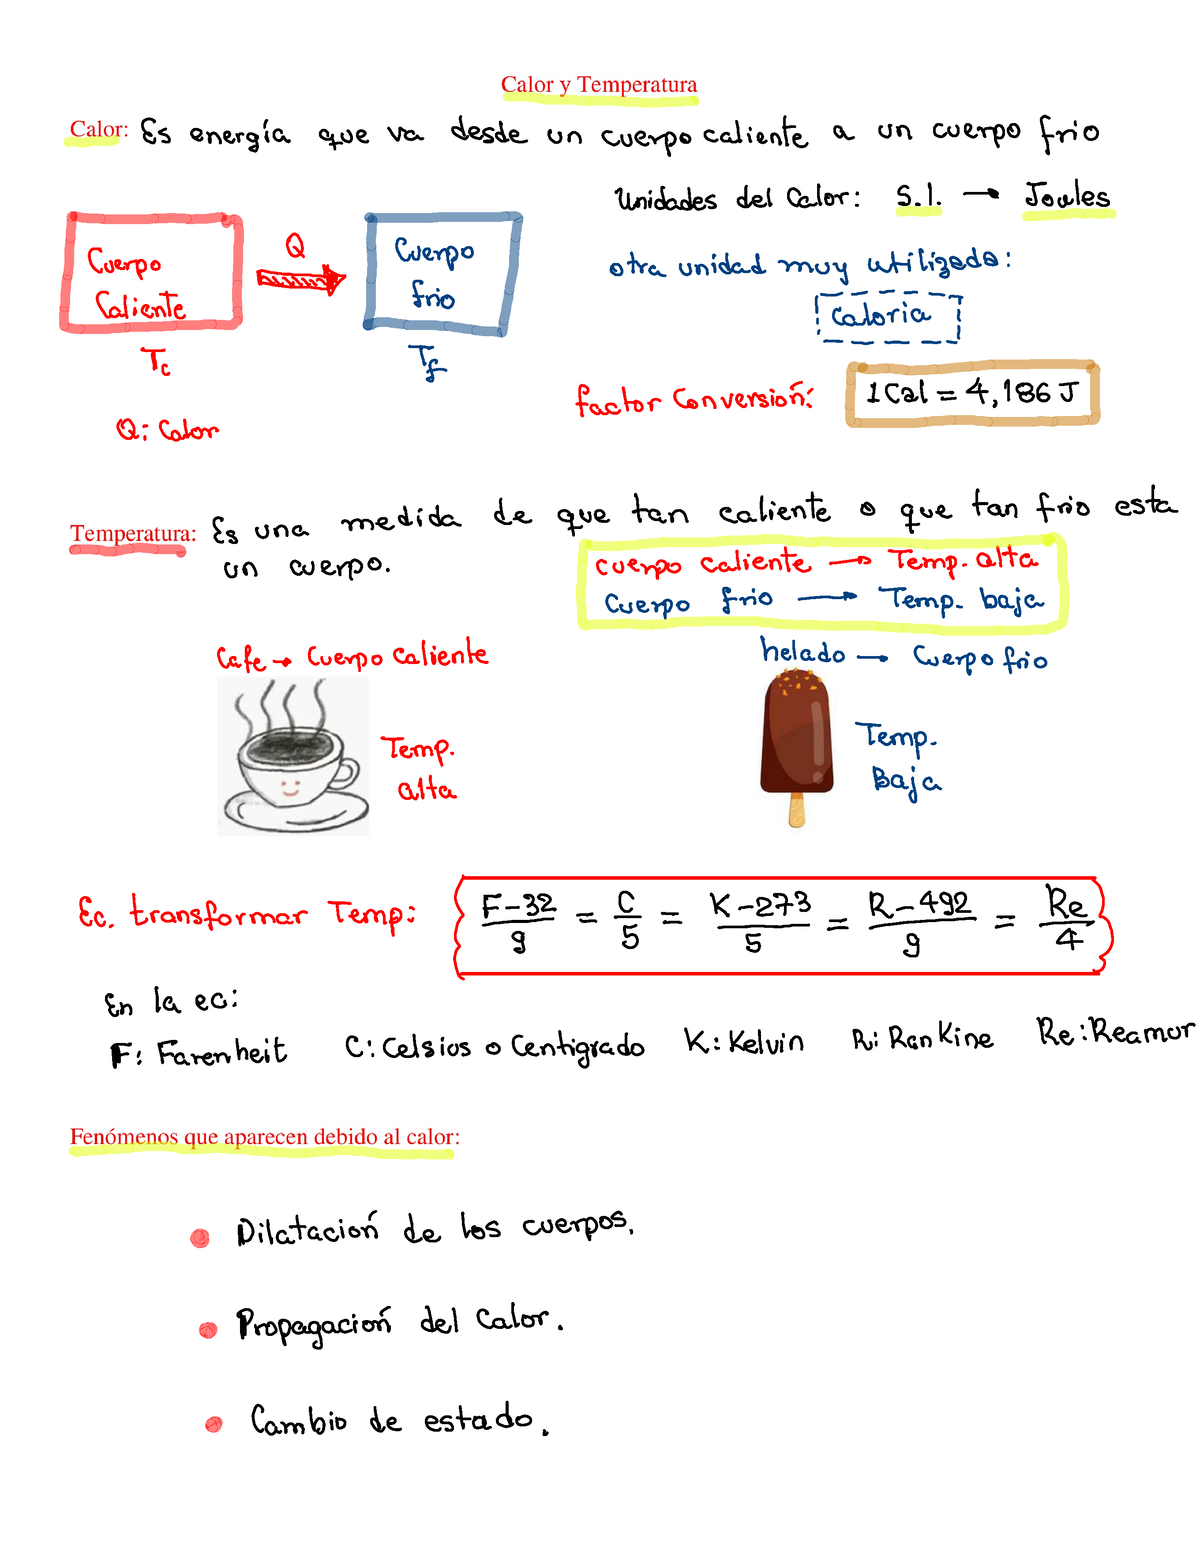 Calor y Temperatura
Calor: Es energía que va desde un cuerpo caliente a un cuerpo frio
Unidades del Calor: S.I. → Joules
Cuerpo Caliente
Q
Cuerpo frio
otra unidad muy utilizada:
Caloria
Tc
Tf
factor Conversión:
1 Cal = 4,186 J
Q: Calor
Temperatura: Es una medida de que tan caliente o que tan frio esta
un cuerpo.
cuerpo caliente → Temp. alta
Cuerpo frio → Temp. baja
Cafe → Cuerpo Caliente
helado → Cuerpo frio
Temp. alta
Temp. Baja
Ec. transformar Temp:
F-32/9 = C/5 = K-273/5 = R-492/9 = Re/4
En la ec:
F: Farenheit C: Celsios o Centigrado K: Kelvin R: Rankine Re: Reamur
Fenómenos que aparecen debido al calor:
Dilatación de los cuerpos.
Propagación del Calor.
Cambio de estado.